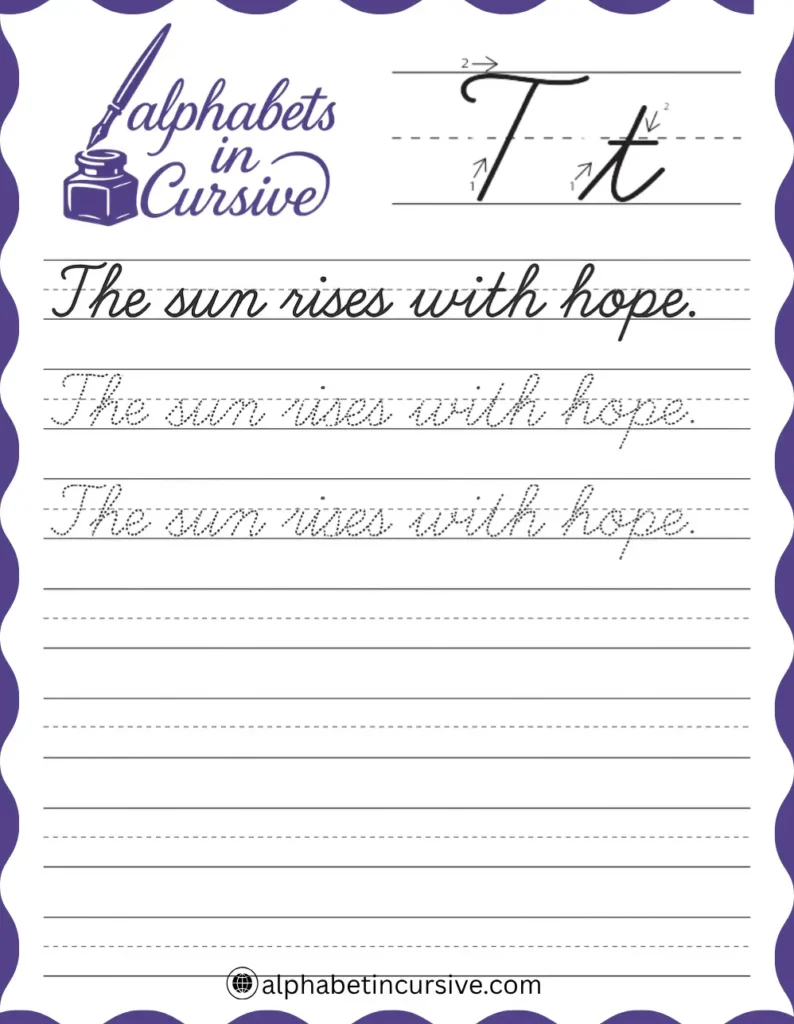 alphabets
in
Cursive
2 T t 2
1 1
The sun rises with hope.
The sun rises with hope.
The sun rises with hope.
alphabetincursive.com